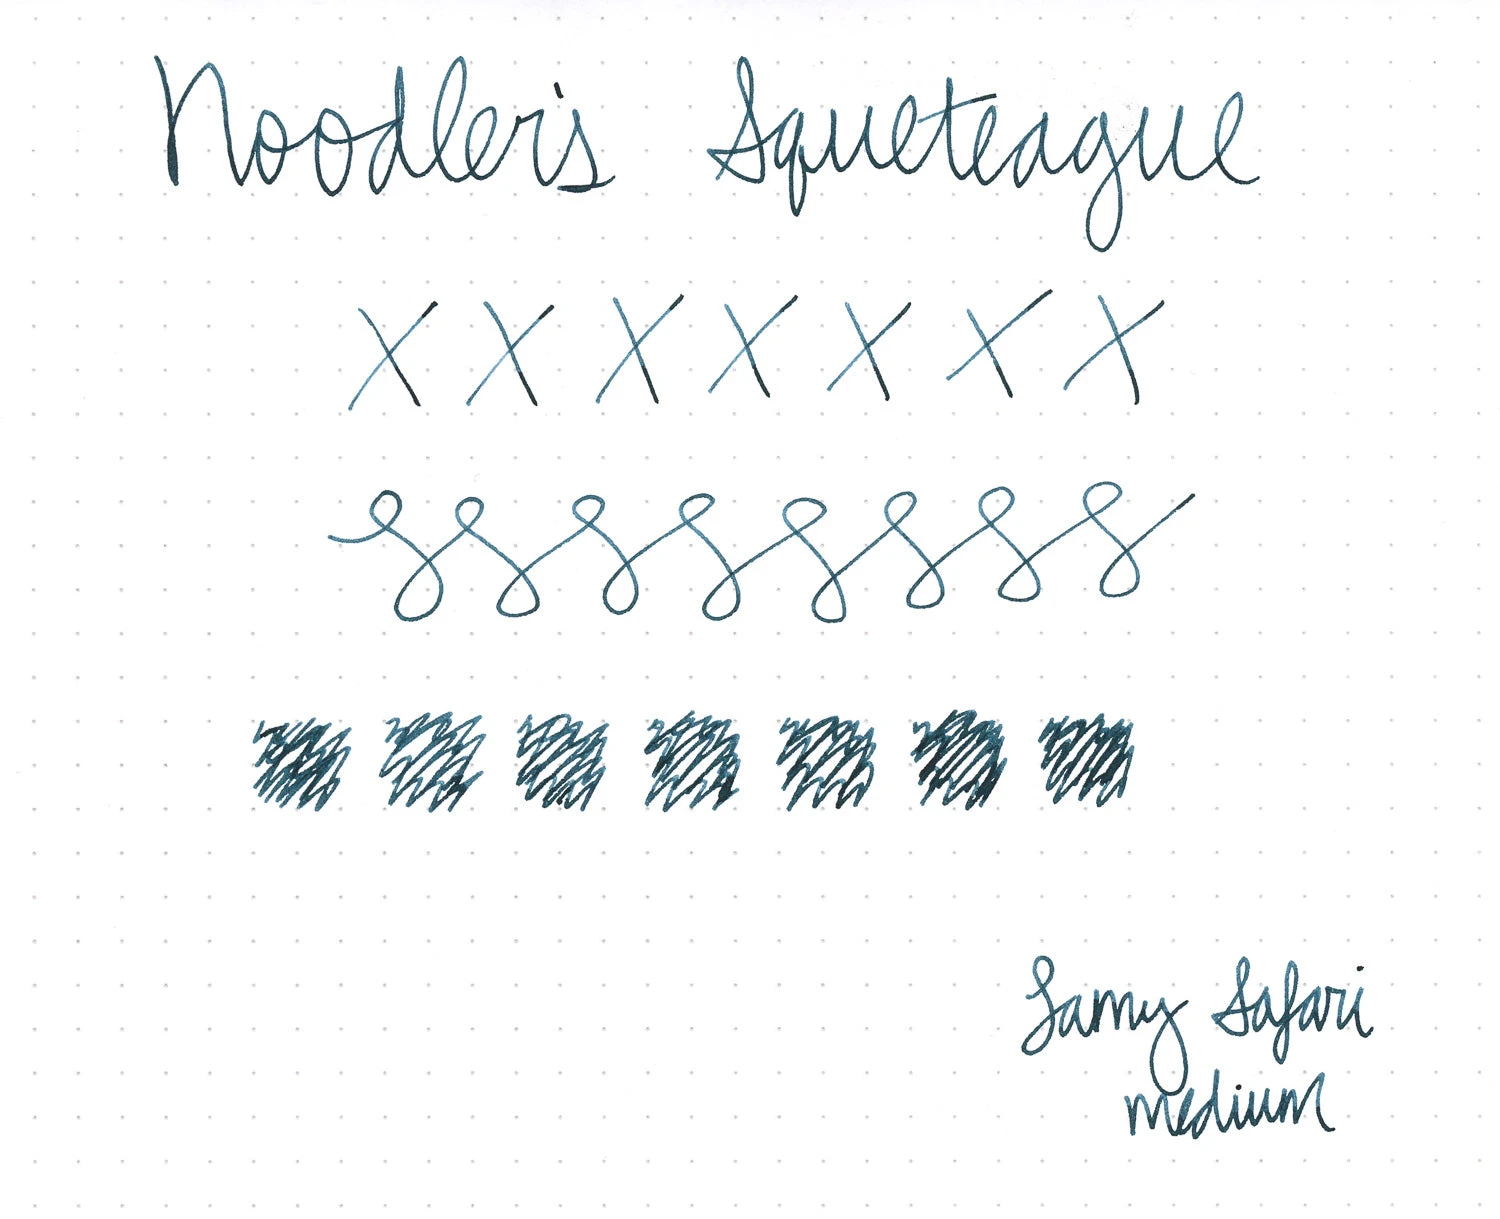 Noodler's Squeteague
x x x x x x x
Lamy Safari
medium